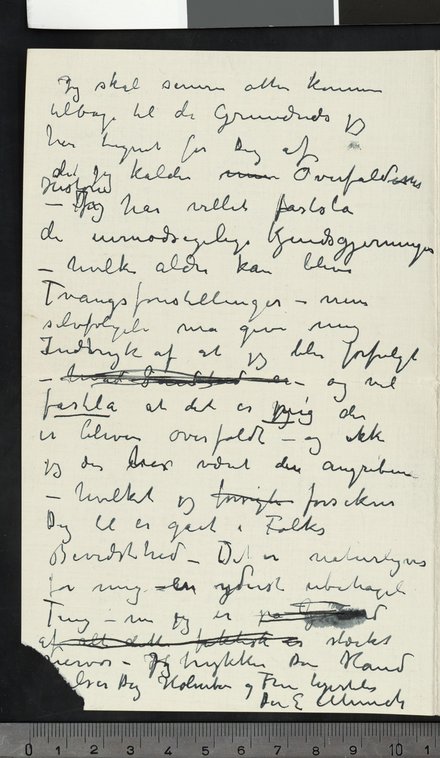 Jeg skal senere atter komme
tilbage til de Grundrids jeg
har tegnet for Dig af
det jeg kalder Overfaldenes
Historie
– Jeg har villet fastsla
de uimodsigelige Kjendsgjerninger
– hvilke aldri kan blive
Tvangsforestillinger – men
selvfølgeli ma give mig
Indtryk af at jeg blir forfulgt
– og vil
fastsla at det er mig der
er bleven overfaldt – og ikk
jeg der har været den angribende
– hvilket jeg forsikrer
Dig til er gaat i Folks
Bevidsthed – Det er naturligvis
for mig en yderst ubehageli
Ting – men jeg er
stærkt
nervøs – Jeg trykker Din Haand
Dig og Fru hjerteligst
Din E Munch
0 1 2 3 4 5 6 7 8 9 10 1